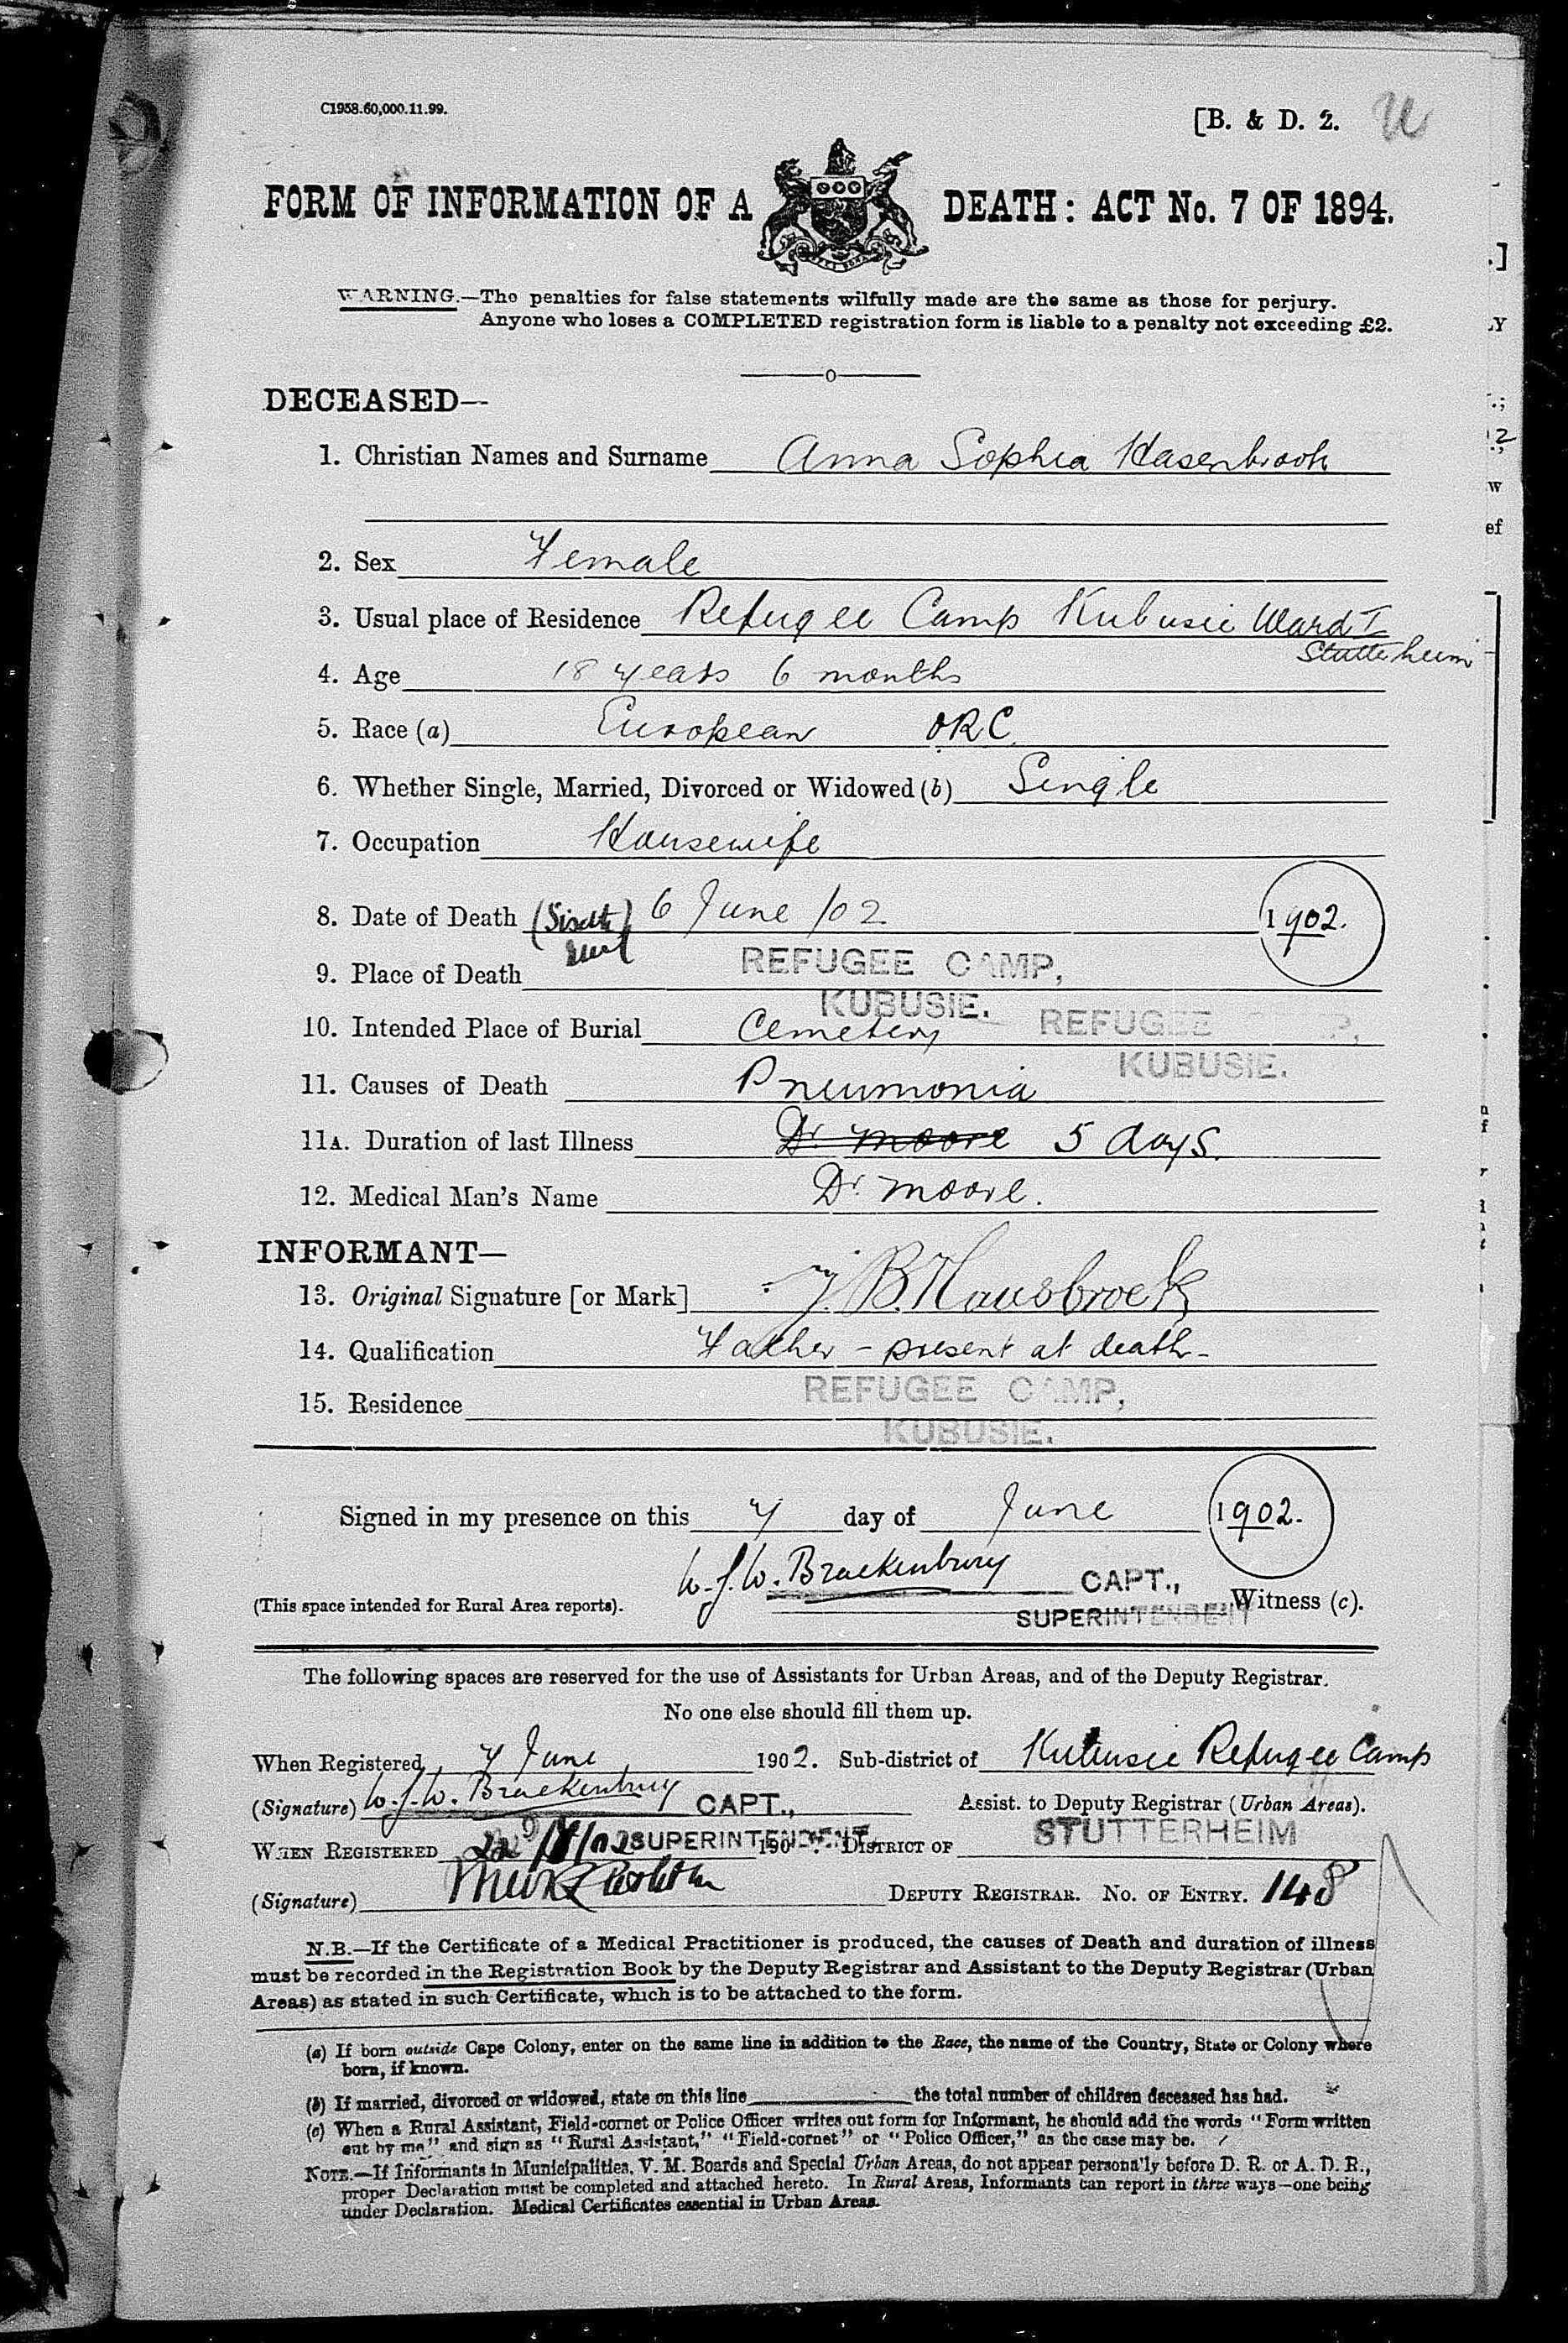 C1958.60,000.11.99.
[B. & D. 2.
FORM OF INFORMATION OF A DEATH: ACT No. 7 OF 1894.
WARNING.—The penalties for false statements wilfully made are the same as those for perjury.
Anyone who loses a COMPLETED registration form is liable to a penalty not exceeding £2.
DECEASED—
1. Christian Names and Surname Anna Sophia Hasenbrook
2. Sex Female
3. Usual place of Residence Refugee Camp Kubusie Ward I
Stutterheim
4. Age 18 years 6 months
5. Race (a) European ORC
6. Whether Single, Married, Divorced or Widowed (b) Single
7. Occupation Housewife
8. Date of Death 6 June /02 1902.
9. Place of Death REFUGEE CAMP,
KUBUSIE.
10. Intended Place of Burial Cemetery REFUGEE CAMP,
KUBUSIE.
11. Causes of Death Pneumonia
11A. Duration of last Illness Dr Moore 5 days.
12. Medical Man's Name Dr Moore.
INFORMANT—
13. Original Signature [or Mark] J B. Hausbroek
14. Qualification Father – present at death –
15. Residence REFUGEE CAMP,
KUBUSIE.
Signed in my presence on this 7 day of June 1902.
W. J. W. Brackenbury CAPT.,
(This space intended for Rural Area reports). SUPERINTENDENT Witness (c).
The following spaces are reserved for the use of Assistants for Urban Areas, and of the Deputy Registrar.
No one else should fill them up.
When Registered 7 June 1902. Sub-district of Kubusie Refugee Camp
(Signature) W. J. W. Brackenbury CAPT., Assist. to Deputy Registrar (Urban Areas).
WHEN REGISTERED SUPERINTENDENT. 190 DISTRICT OF STUTTERHEIM
(Signature) DEPUTY REGISTRAR. No. OF ENTRY. 148
N.B.—If the Certificate of a Medical Practitioner is produced, the causes of Death and duration of illness
must be recorded in the Registration Book by the Deputy Registrar and Assistant to the Deputy Registrar (Urban
Areas) as stated in such Certificate, which is to be attached to the form.
(a) If born outside Cape Colony, enter on the same line in addition to the Race, the name of the Country, State or Colony where
born, if known.
(b) If married, divorced or widowed, state on this line the total number of children deceased has had.
(c) When a Rural Assistant, Field-cornet or Police Officer writes out form for Informant, he should add the words "Form written
out by me" and sign as "Rural Assistant," "Field-cornet" or "Police Officer," as the case may be.
NOTE.—If Informants in Municipalities, V. M. Boards and Special Urban Areas, do not appear personally before D. R. or A. D. R.,
proper Declaration must be completed and attached hereto. In Rural Areas, Informants can report in three ways—one being
under Declaration. Medical Certificates essential in Urban Areas.